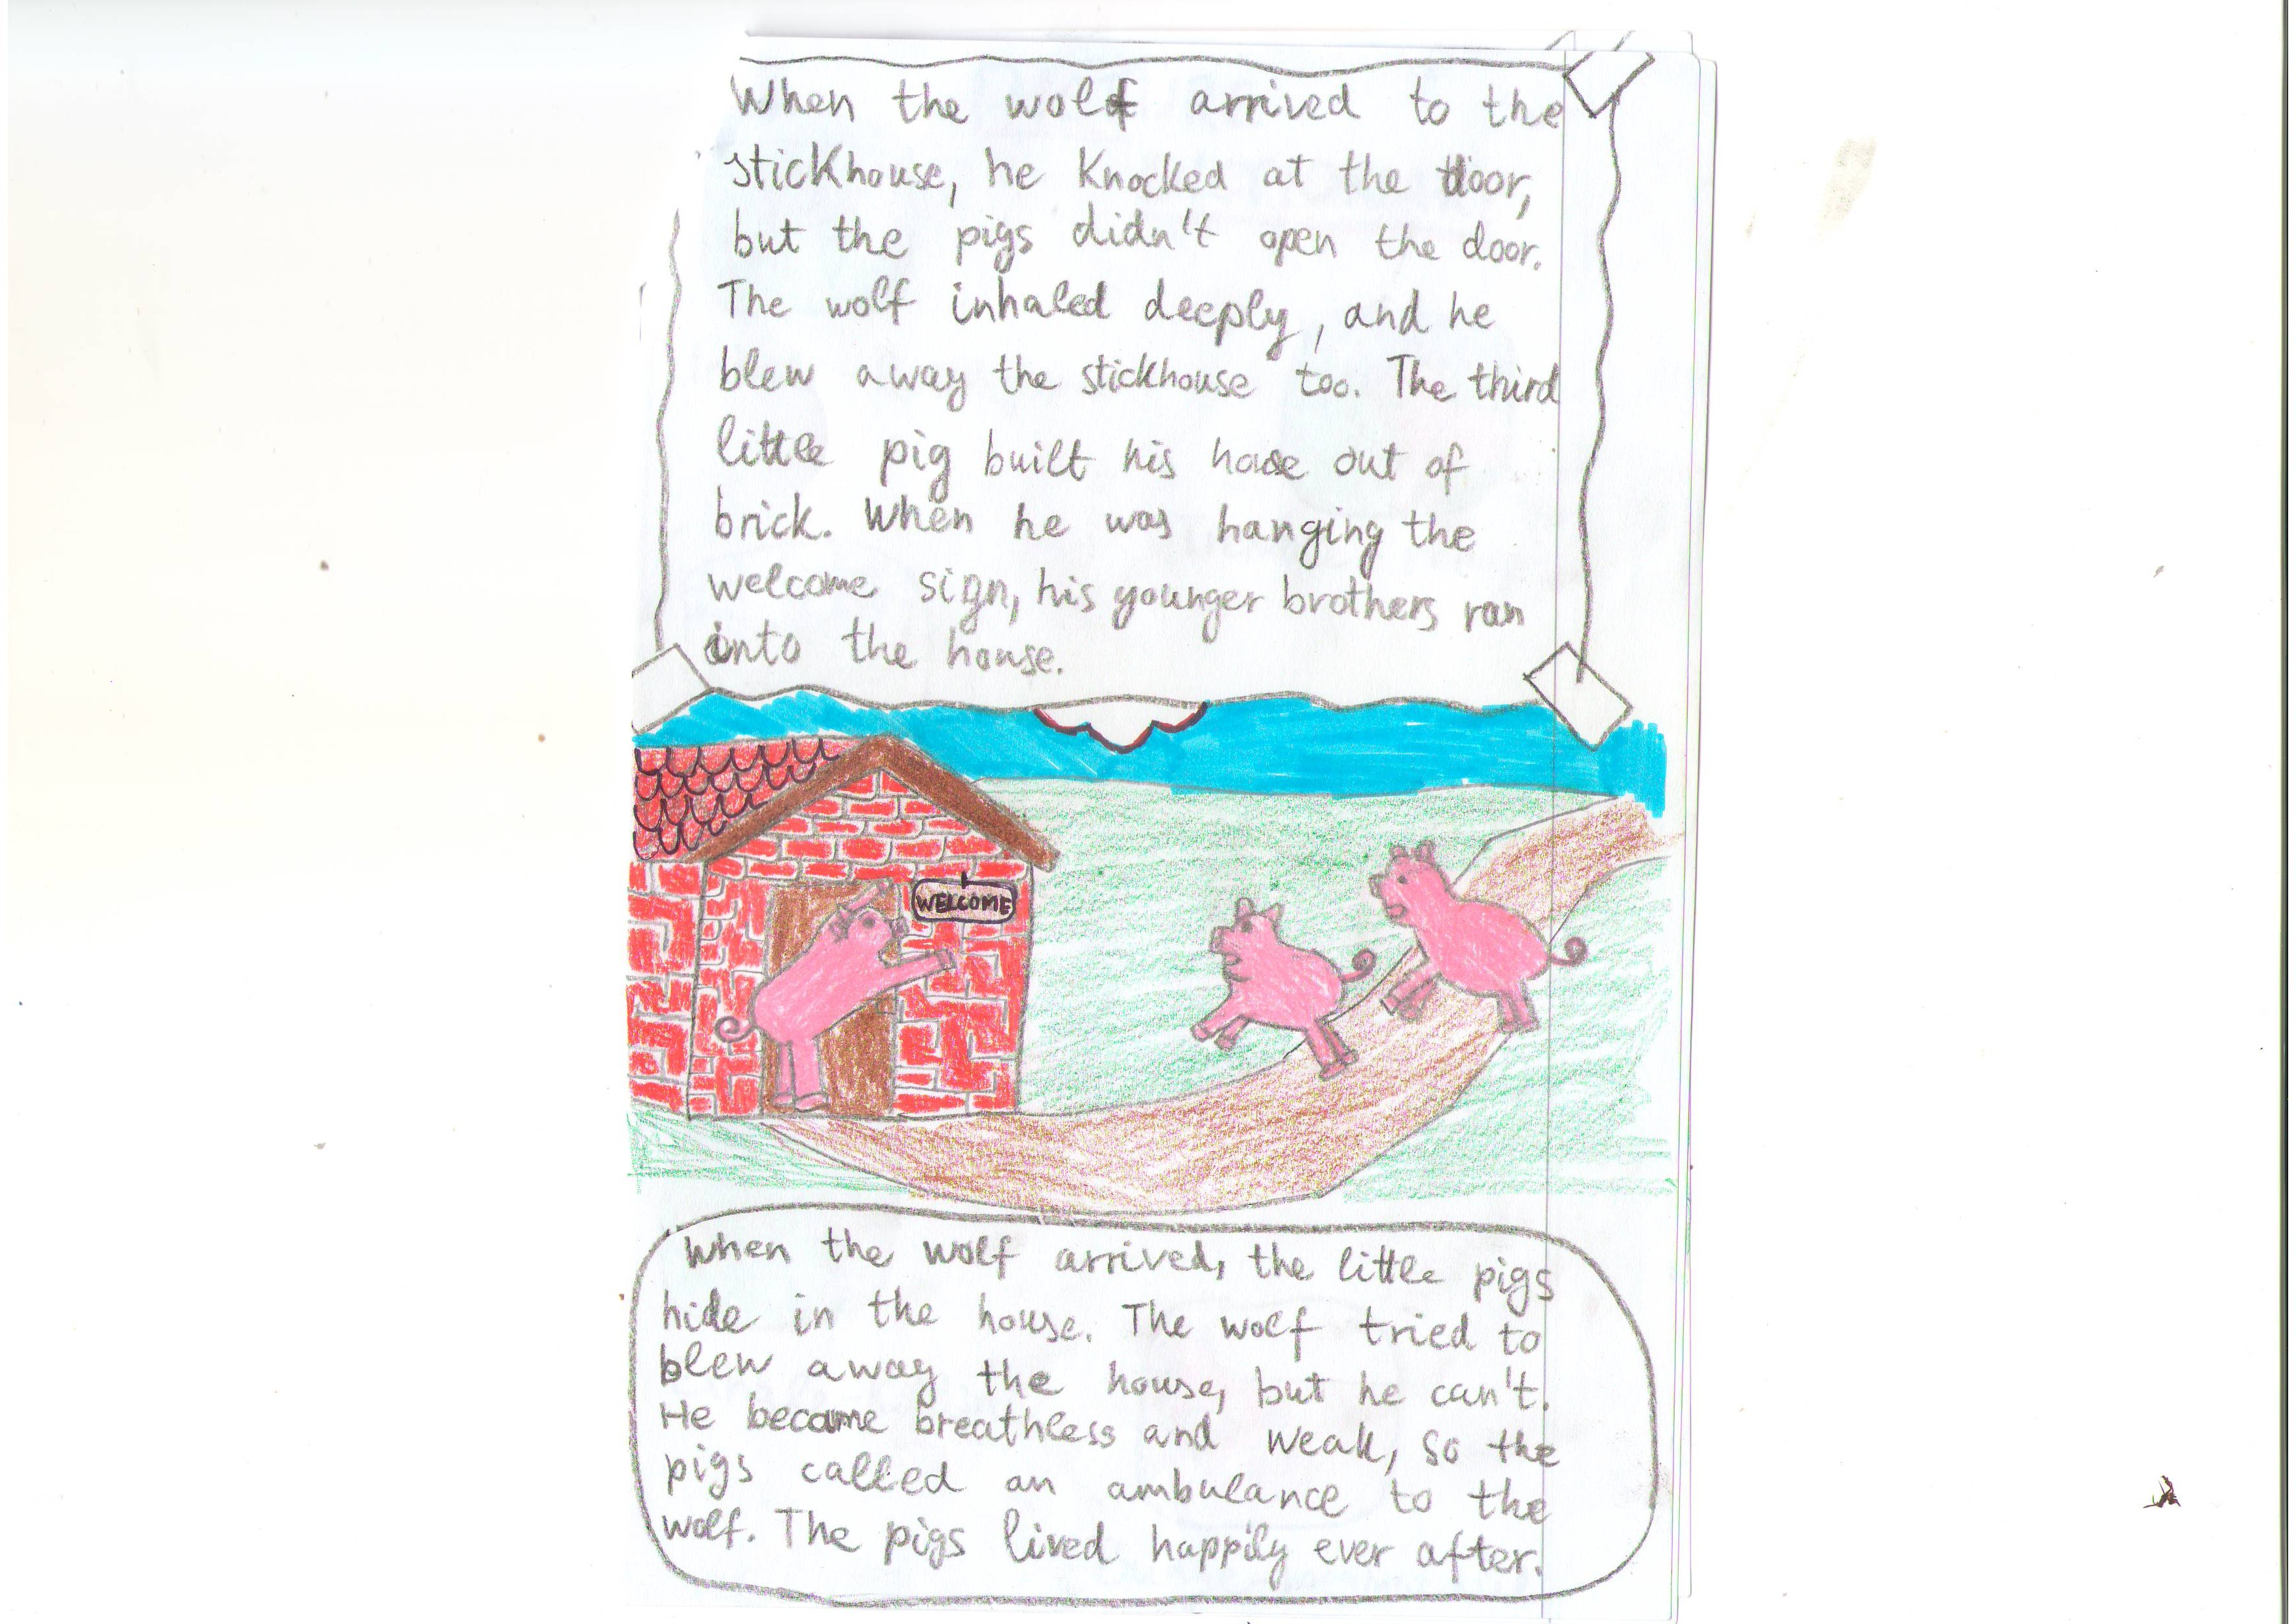 When the wolf arrived to the
stickhouse, he knocked at the door,
but the pigs didn't open the door.
The wolf inhaled deeply, and he
blew away the stickhouse too. The third
little pig built his house out of
brick. When he was hanging the
welcome sign, his younger brothers ran
into the house.
WELCOME
When the wolf arrived, the little pigs
hide in the house. The wolf tried to
blew away the house, but he can't.
He became breathless and weak, so the
pigs called an ambulance to the
wolf. The pigs lived happily ever after.